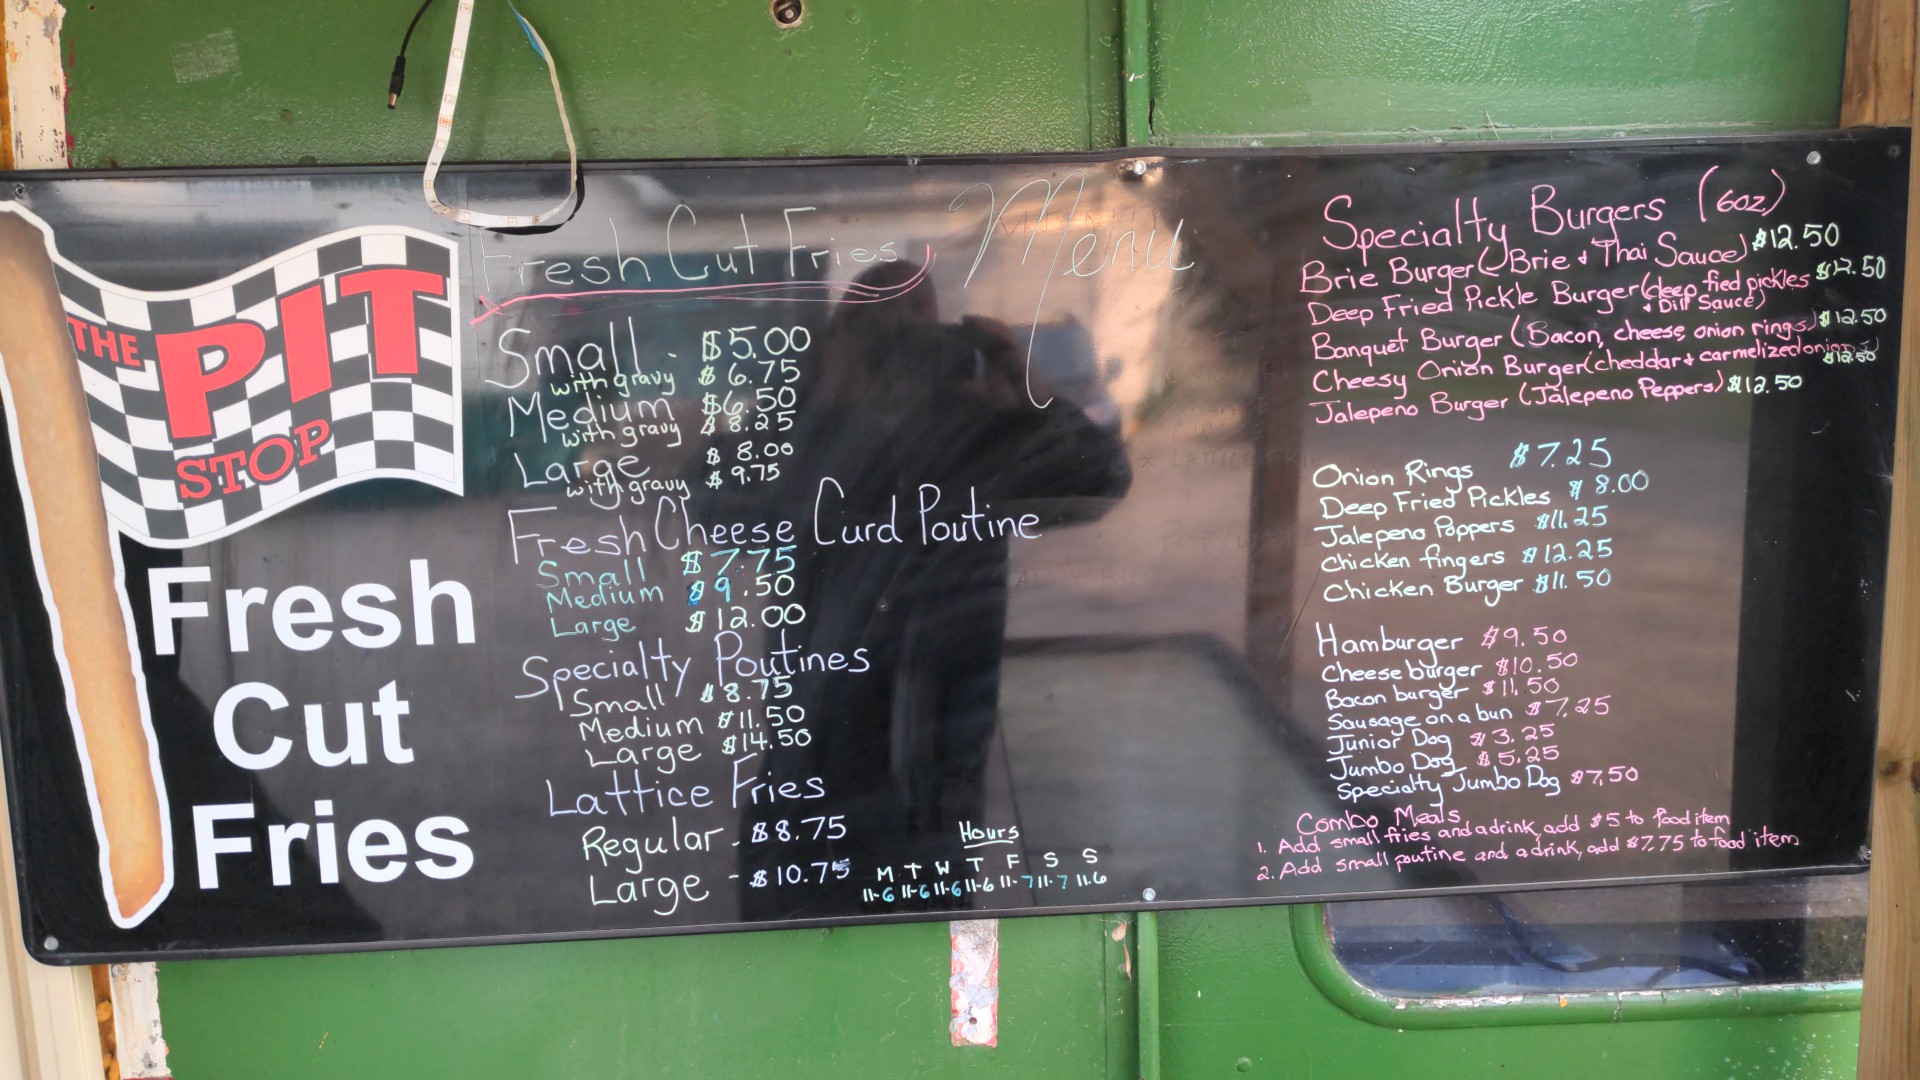 THE
PIT
STOP
Fresh
Cut
Fries
Fresh Cut Fries
Menu
Small - $5.00
with gravy $6.75
Medium $6.50
with gravy $8.25
Large $8.00
with gravy $9.75
Fresh Cheese Curd Poutine
Small $7.75
Medium $9.50
Large $12.00
Specialty Poutines
Small $8.75
Medium $11.50
Large $14.50
Lattice Fries
Regular - $8.75
Large - $10.75
Hours
M T W T F S S
11-6 11-6 11-6 11-6 11-7 11-7 11-6
Specialty Burgers (6oz)
Brie Burger (Brie + Thai Sauce) $12.50
Deep Fried Pickle Burger (deep fied pickles $12.50
+ Dill Sauce)
Banquet Burger (Bacon, cheese, onion rings) $12.50
Cheesy Onion Burger (cheddar + carmelized onions)
$12.50
Jalepeno Burger (Jalepeno Peppers) $12.50
Onion Rings $7.25
Deep Fried Pickles $8.00
Jalepeno Poppers $11.25
Chicken fingers $12.25
Chicken Burger $11.50
Hamburger $9.50
Cheese burger $10.50
Bacon burger $11.50
Sausage on a bun $7.25
Junior Dog $3.25
Jumbo Dog $5.25
Specialty Jumbo Dog $7.50
Combo Meals
1. Add small fries and a drink, add $5 to food item
2. Add small poutine and a drink, add $7.75 to food item